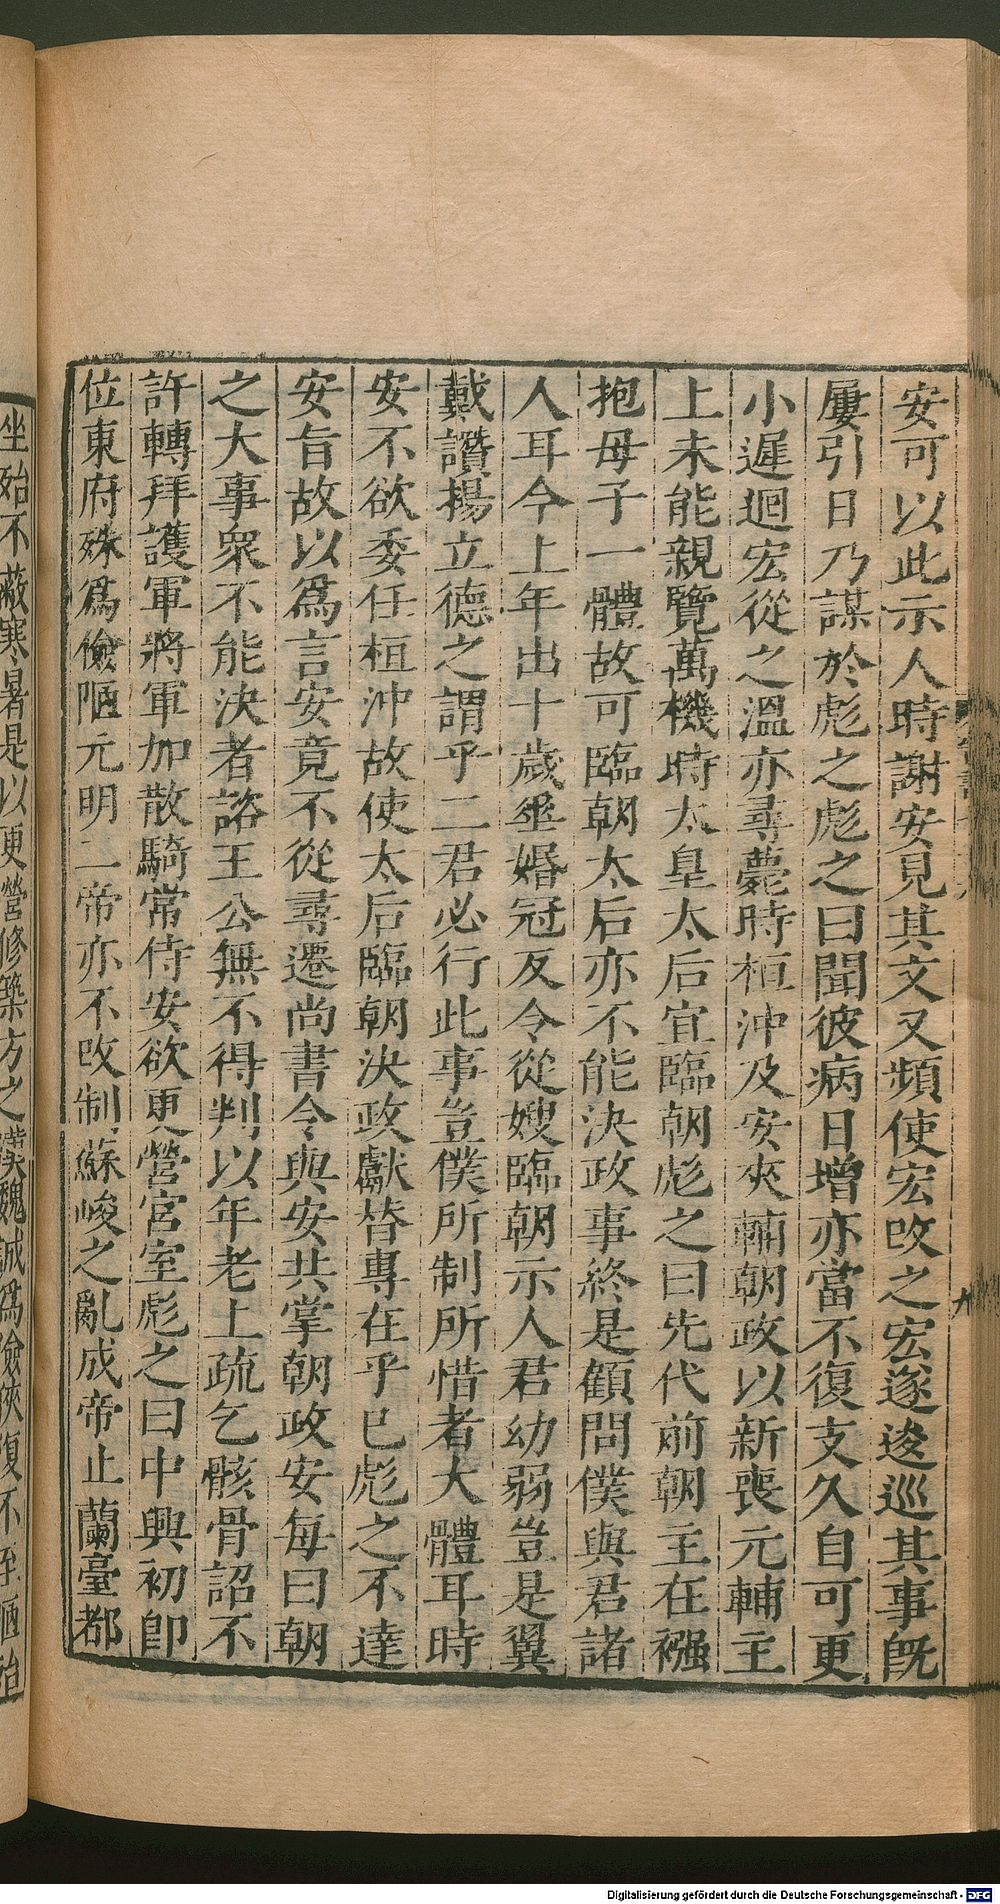 安可以此示人時謝安見其文又頻使宏改之宏遂逡巡其事旣
屢引日乃謀於彪之彪之曰聞彼病日增亦當不復支久自可更
小遲迴宏從之溫亦尋薨時桓沖及安夾輔朝政以新喪元輔主
上未能親覽萬機時太皇太后宜臨朝彪之曰先代前朝主在襁
抱母子一體故可臨朝太后亦不能決政事終是顧問僕與君諸
人耳今上年出十歲垂婚冠反令從嫂臨朝示人君幼弱豈是翼
戴讚揚立德之謂乎二君必行此事豈僕所制所惜者大體耳時
安不欲委任桓沖故使太后臨朝決政獻替專在乎已彪之不達
安旨故以爲言安竟不從尋遷尚書令與安共掌朝政安每曰朝
之大事衆不能決者諮王公無不得判以年老上疏乞骸骨詔不
許轉拜護軍將軍加散騎常侍安欲更營宮室彪之曰中興初卽
位東府殊爲儉陋元明二帝亦不改制蘇峻之亂成帝止蘭臺都
坐殆不蔽寒暑是以更營修築方之漢魏誠爲儉狹復不至陋殆
九
Digitalisierung gefördert durch die Deutsche Forschungsgemeinschaft - DFG